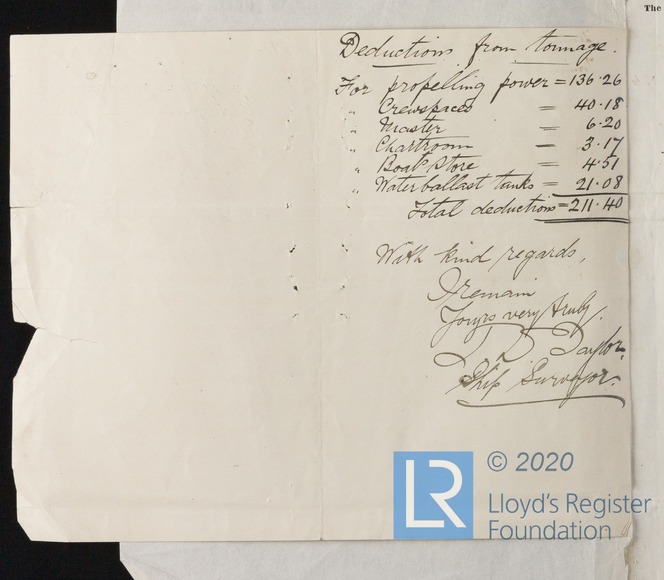 The
Deductions from tonnage.
For propelling power = 136.26
" Crewspaces = 40.18
" Master = 6.20
" Chartroom — 3.17
" Boat store = 4.51
" Water ballast tanks = 21.08
Total deductions = 211.40
With kind regards,
I remain
Yours very truly,
Taylor.
Ship Surveyor.
LR
© 2020
Lloyd's Register
Foundation